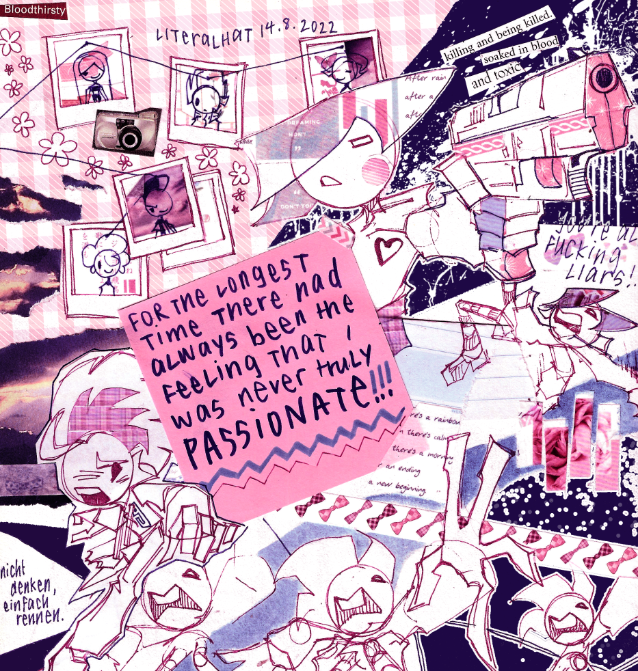 Bloodthirsty
LITERALHAT 14.8.2022
killing and being killed.
soaked in blood
and toxic
After rain
after a
DREAMING
DON'T
you're all
FUCKING
LIARS!!
FOR THE LONGEST
TIME THERE HAD
ALWAYS BEEN THE
FEELING THAT I
WAS NEVER TRULY
PASSIONATE!!!
there's a rainbow
there's calm
there's a morning
an ending
a new beginning
nicht
denken,
einfach
rennen.